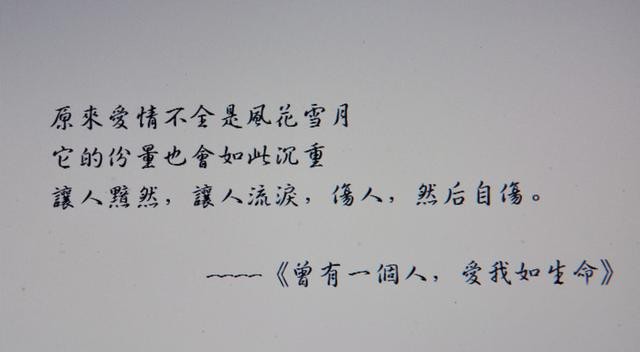 原來愛情不全是風花雪月
它的份量也會如此沉重
讓人黯然，讓人流淚，傷人，然后自傷。
~~~~《曾有一個人，愛我如生命》